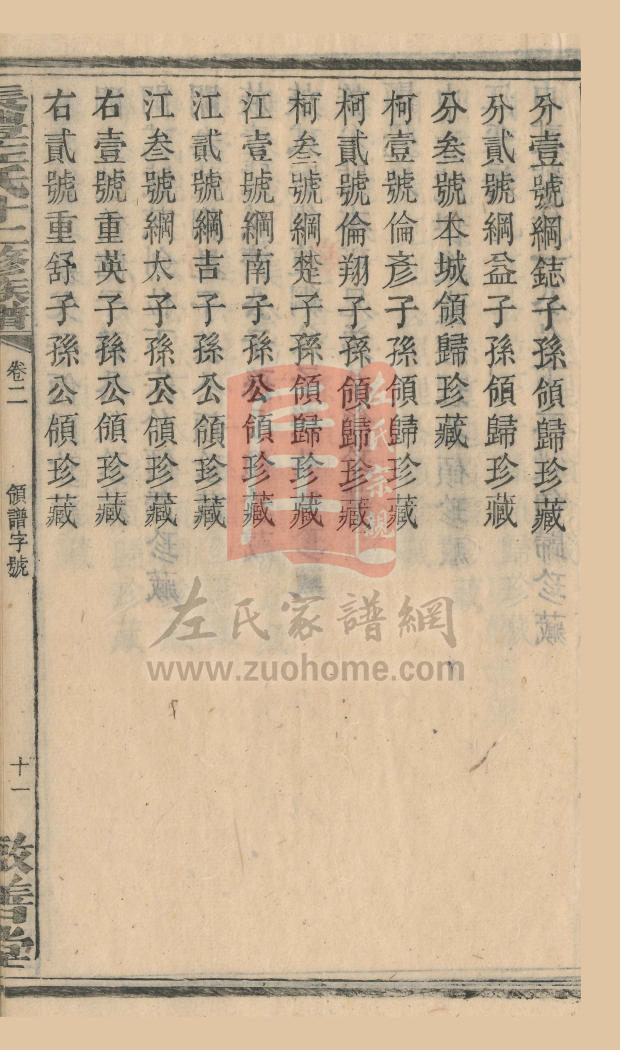 分壹號綱鋕子孫領歸珍藏
分貳號綱益子孫領歸珍藏
分叁號本城領歸珍藏
柯壹號倫彥子孫領歸珍藏
柯貳號倫翔子孫領歸珍藏
柯叁號綱楚子孫領歸珍藏
江壹號綱南子孫公領珍藏
江貳號綱吉子孫公領珍藏
江叁號綱太子孫公領珍藏
右壹號重英子孫公領珍藏
右貳號重舒子孫公領珍藏
左氏十二修族譜
卷二
領譜字號
十一
敦善堂
左氏宗親
左氏家譜網
www.zuohome.com